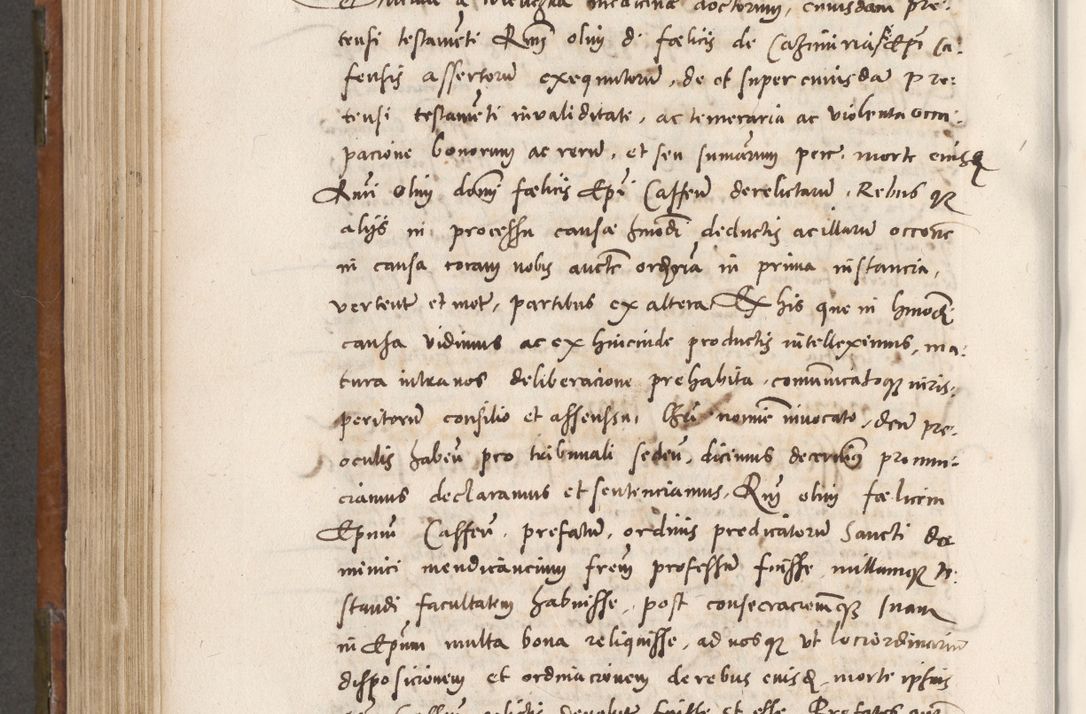 medicinae doctorum, cuiusdam pre:
tensi testamēti Rm̄i olim d. foelicis de Cazimiria Ep̄i Ca:
fensis assertorū exequutorū, de et super cuiusdā pre:
tensi testamēti invaliditate, ac temeraria ac violenta occu:
pacione bonorum ac rerū, et seu sum̄arum pec. morte eiusd.
Rm̄i olim dom̄i foelicis Ep̄i Caffeñ derelictarū. Rebus q;
alijs in processu causae hmōdi deductis ac illarū occone
in causa coram nobis aucte ordria in prima instancia,
verteñt et mot. partibus ex altera Ex his que in hmōdi
causa vidimus ac ex hincinde productis intelleximus, ma:
tura intra nos deliberacione prehabita, comunicatoq; iuris:
peritorū consilio et assensu, Chri nomine invocato, deū pre
oculis habeñ pro tribunali sedeñ, dicimus decernim̄ pronun:
ciamus declaramus et sentenciamus, Rm̄ olim foelicem
Ep̄um Caffeñ. prefatū, ordinis predicatorū Sancti do
minici mendicancium frem̄ professum fuisse, nullamq; te:
standi facultatem habuisse, post consecracionemq; suam
in Ep̄um multa bona reliquisse, ad nosq; ut loci ordinarium
disposicionem et ordinacionem de rebus eiusd. morte ipsius